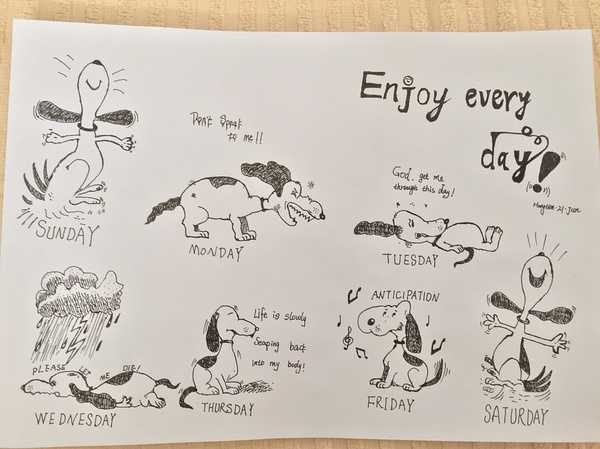 Enjoy every
day!
SUNDAY
Don't Speak
to me!!
MONDAY
God, get me
through this day!
TUESDAY
PLEASE LET ME DIE!
WEDNESDAY
Life is slowly
Seaping back
into my body!
THURSDAY
ANTICIPATION
FRIDAY
SATURDAY